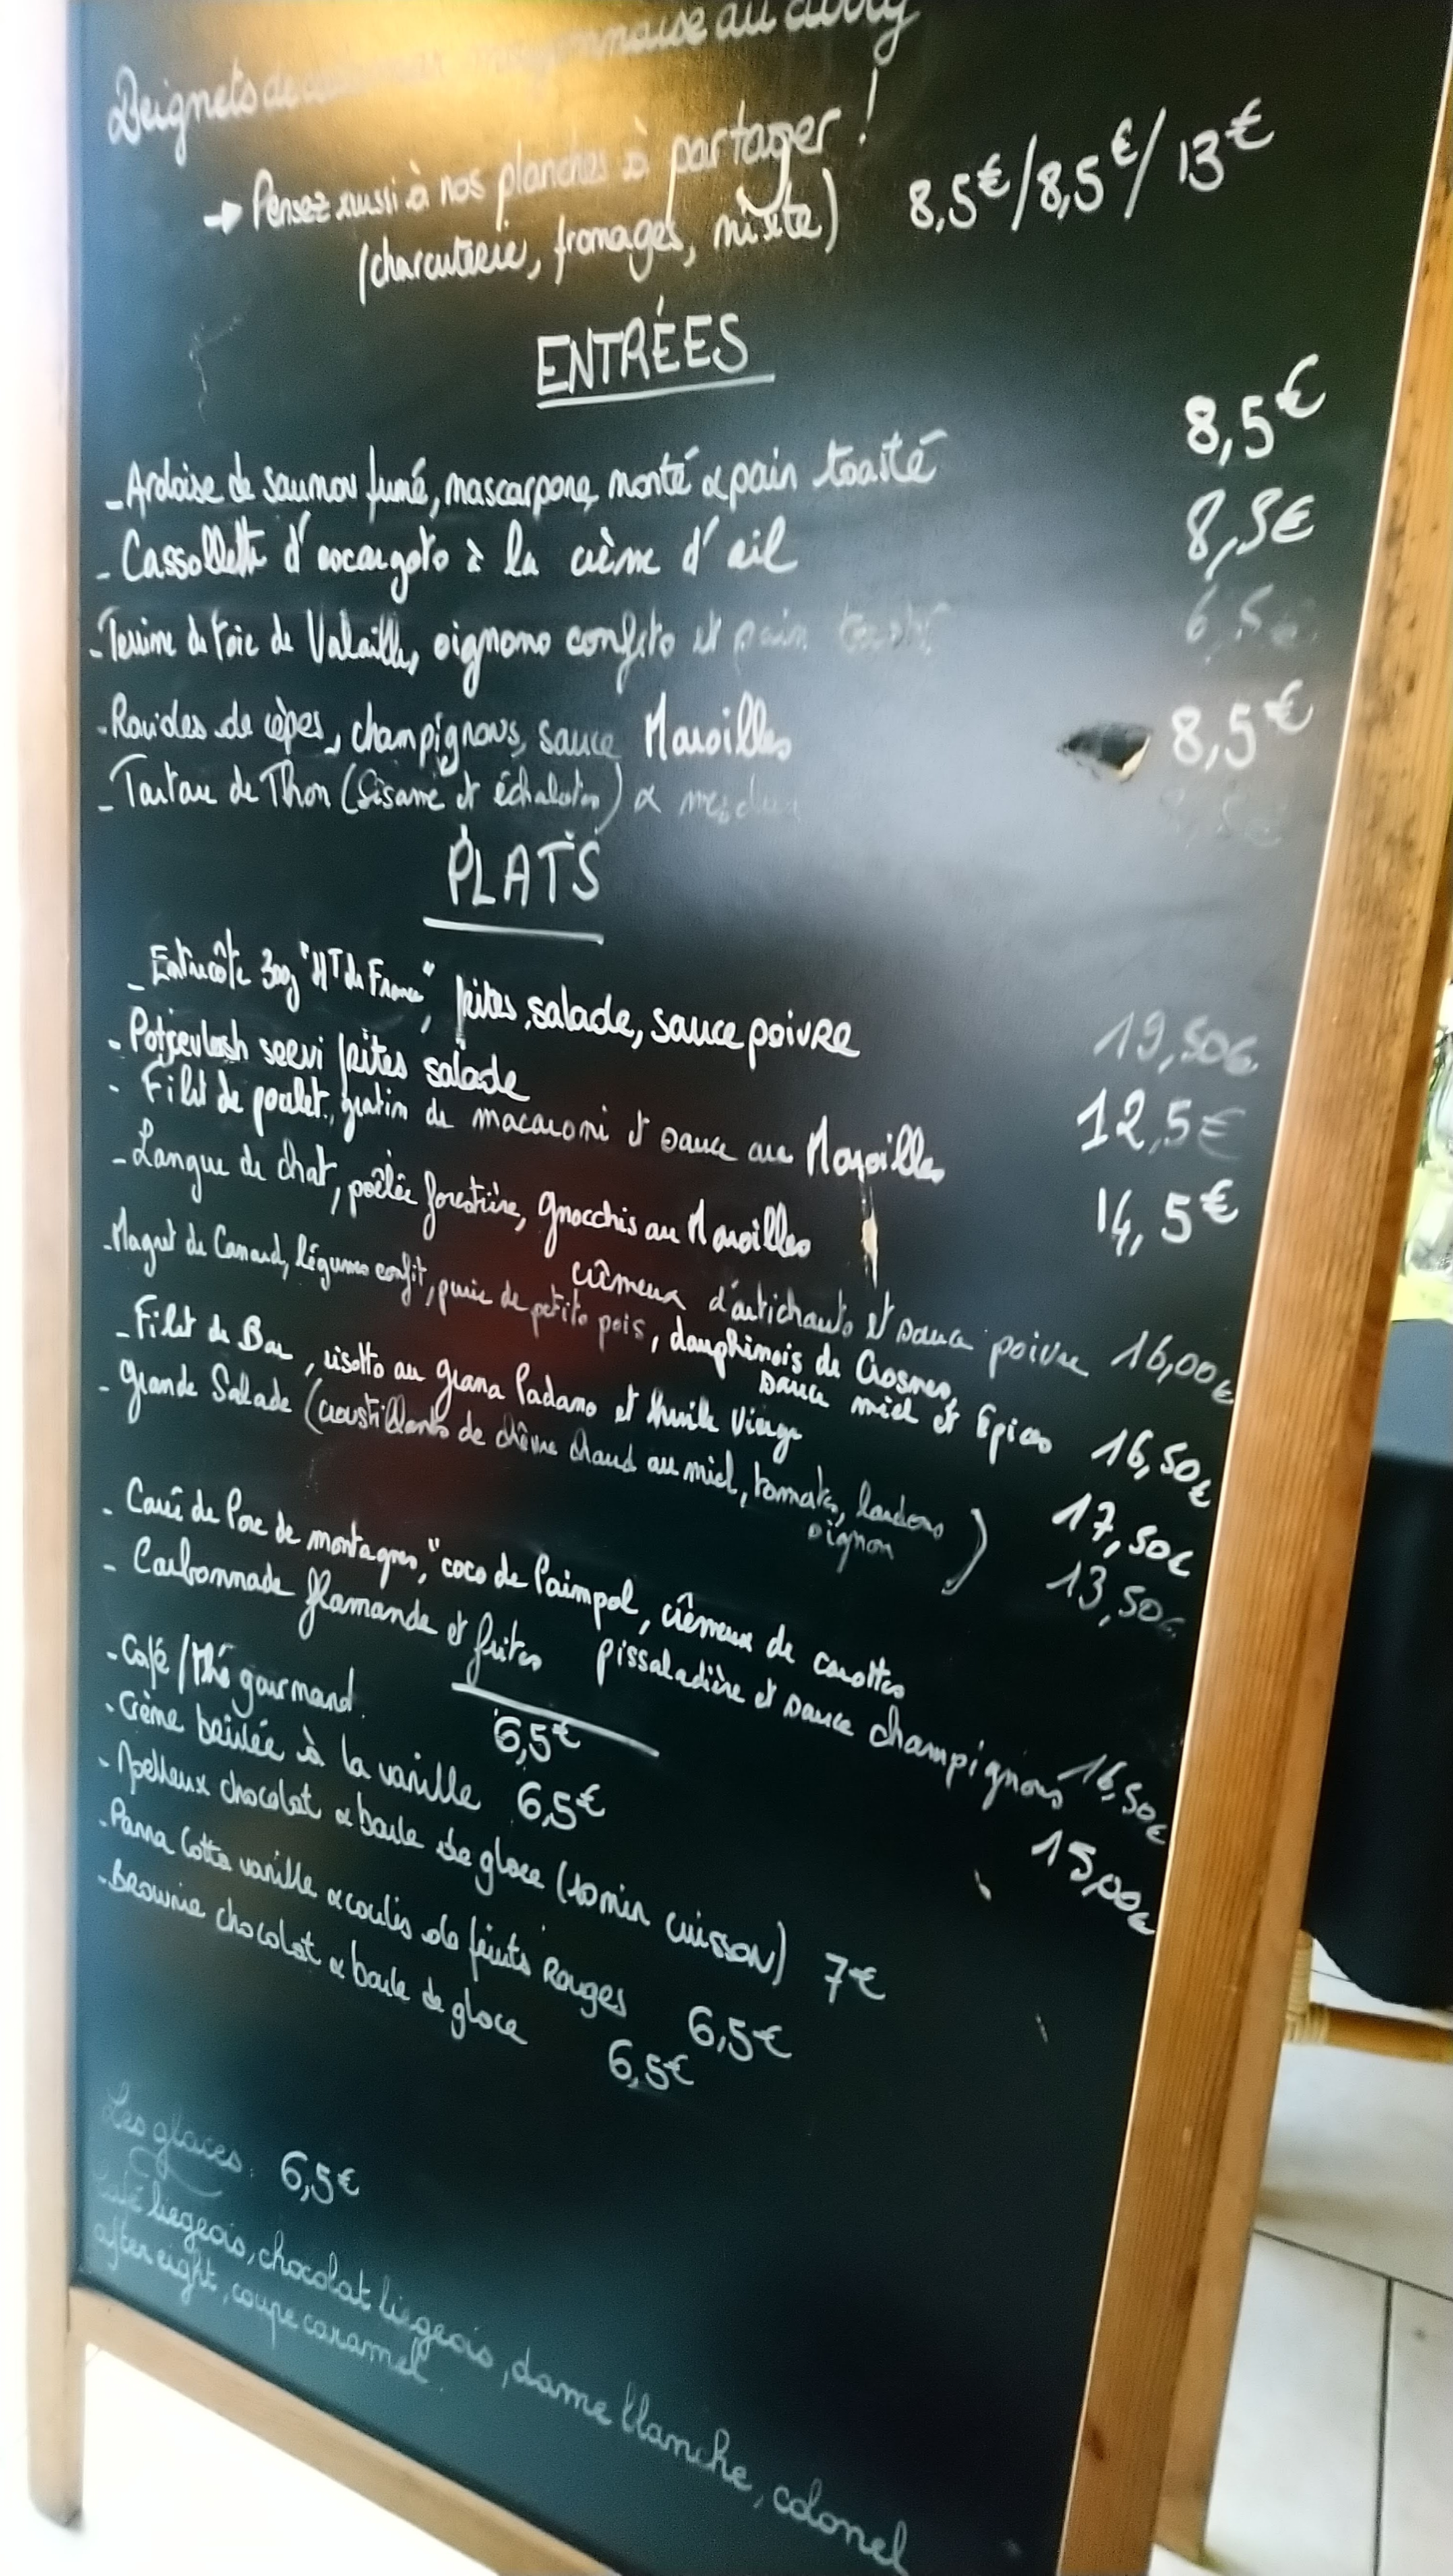 Beignets de mayonnaise au curry
→ Pensez aussi à nos planches à partager !
(charcuterie, fromages, mixte) 8,5€/8,5€/13€
ENTRÉES
- Ardoise de saumon fumé, mascarpone monté & pain toasté 8,5€
- Cassollette d'escargots à la crème d'ail 8,5€
- Terrine de foie de Volailles, oignons confits et pain toasté 6,5€
- Ravioles de cèpes, champignons, sauce Maroilles 8,5€
- Tartare de Thon (Sésame et échalotes) &
PLATS
- Entrecôte 300g "HT de France", frites, salade, sauce poivre 19,50€
- Potjevlesh servi frites salade 12,5€
- Filet de poulet, gratin de macaroni et sauce au Maroilles 14,5€
- Langue de chat, poêlée forestière, gnocchis au Maroilles
crèmeux d'artichauts et sauce poivre 16,00€
- Magret de Canard, légumes confit, purée de petits pois, dauphinois de Crosnes,
sauce miel et Epices 16,50€
- Filet de Bar, risotto au grana Padano et huile Vierge 17,50€
- Grande Salade (croustillants de chèvre chaud au miel, tomates, lardons
oignon) 13,50€
- Carré de Porc de montagnes, "coco de Paimpol, crèmeux de carottes
pissaladière et sauce champignons 16,50€
- Carbonnade flamande et frites 15,00€
- Café/Thé gourmand 6,5€
- Crème brûlée à la vanille 6,5€
- Moelleux chocolat & boule de glace (10 min cuisson) 7€
- Panna Cotta vanille & coulis de fruits Rouges 6,5€
- Brownie chocolat & boule de glace 6,5€
Les glaces: 6,5€
Café liegeois, chocolat liegeois, dame blanche, colonel
after eight, coupe caramel.